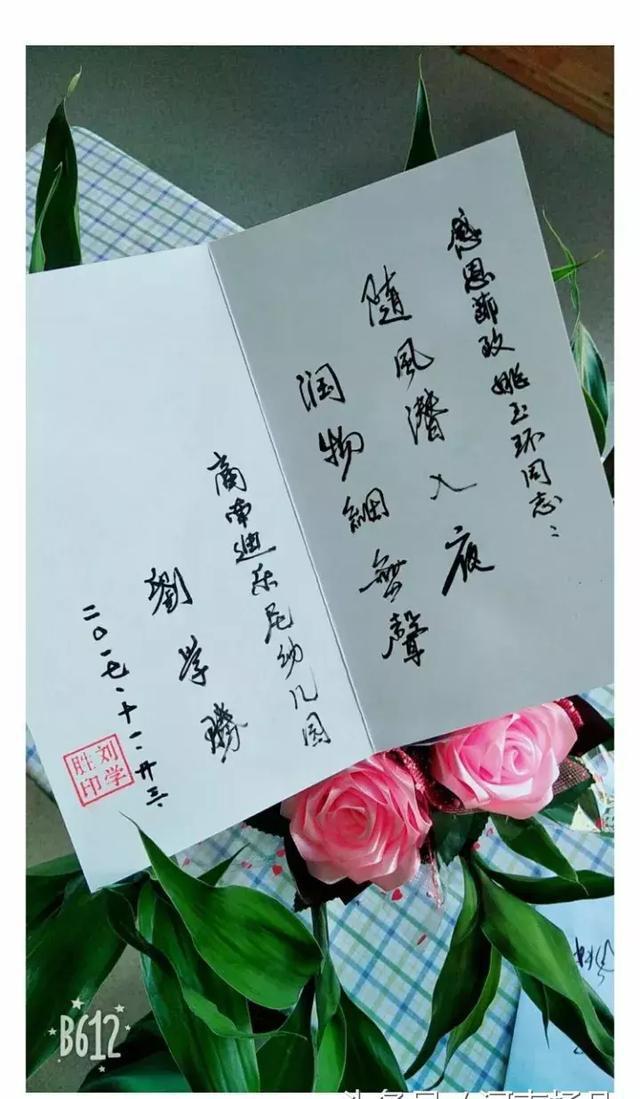 感恩節致姚玉环同志：
随風潛入夜
润物細無聲
商南迪乐尼幼儿园
劉学勝
二〇一七·十一·廿三·
刘学胜印
B612